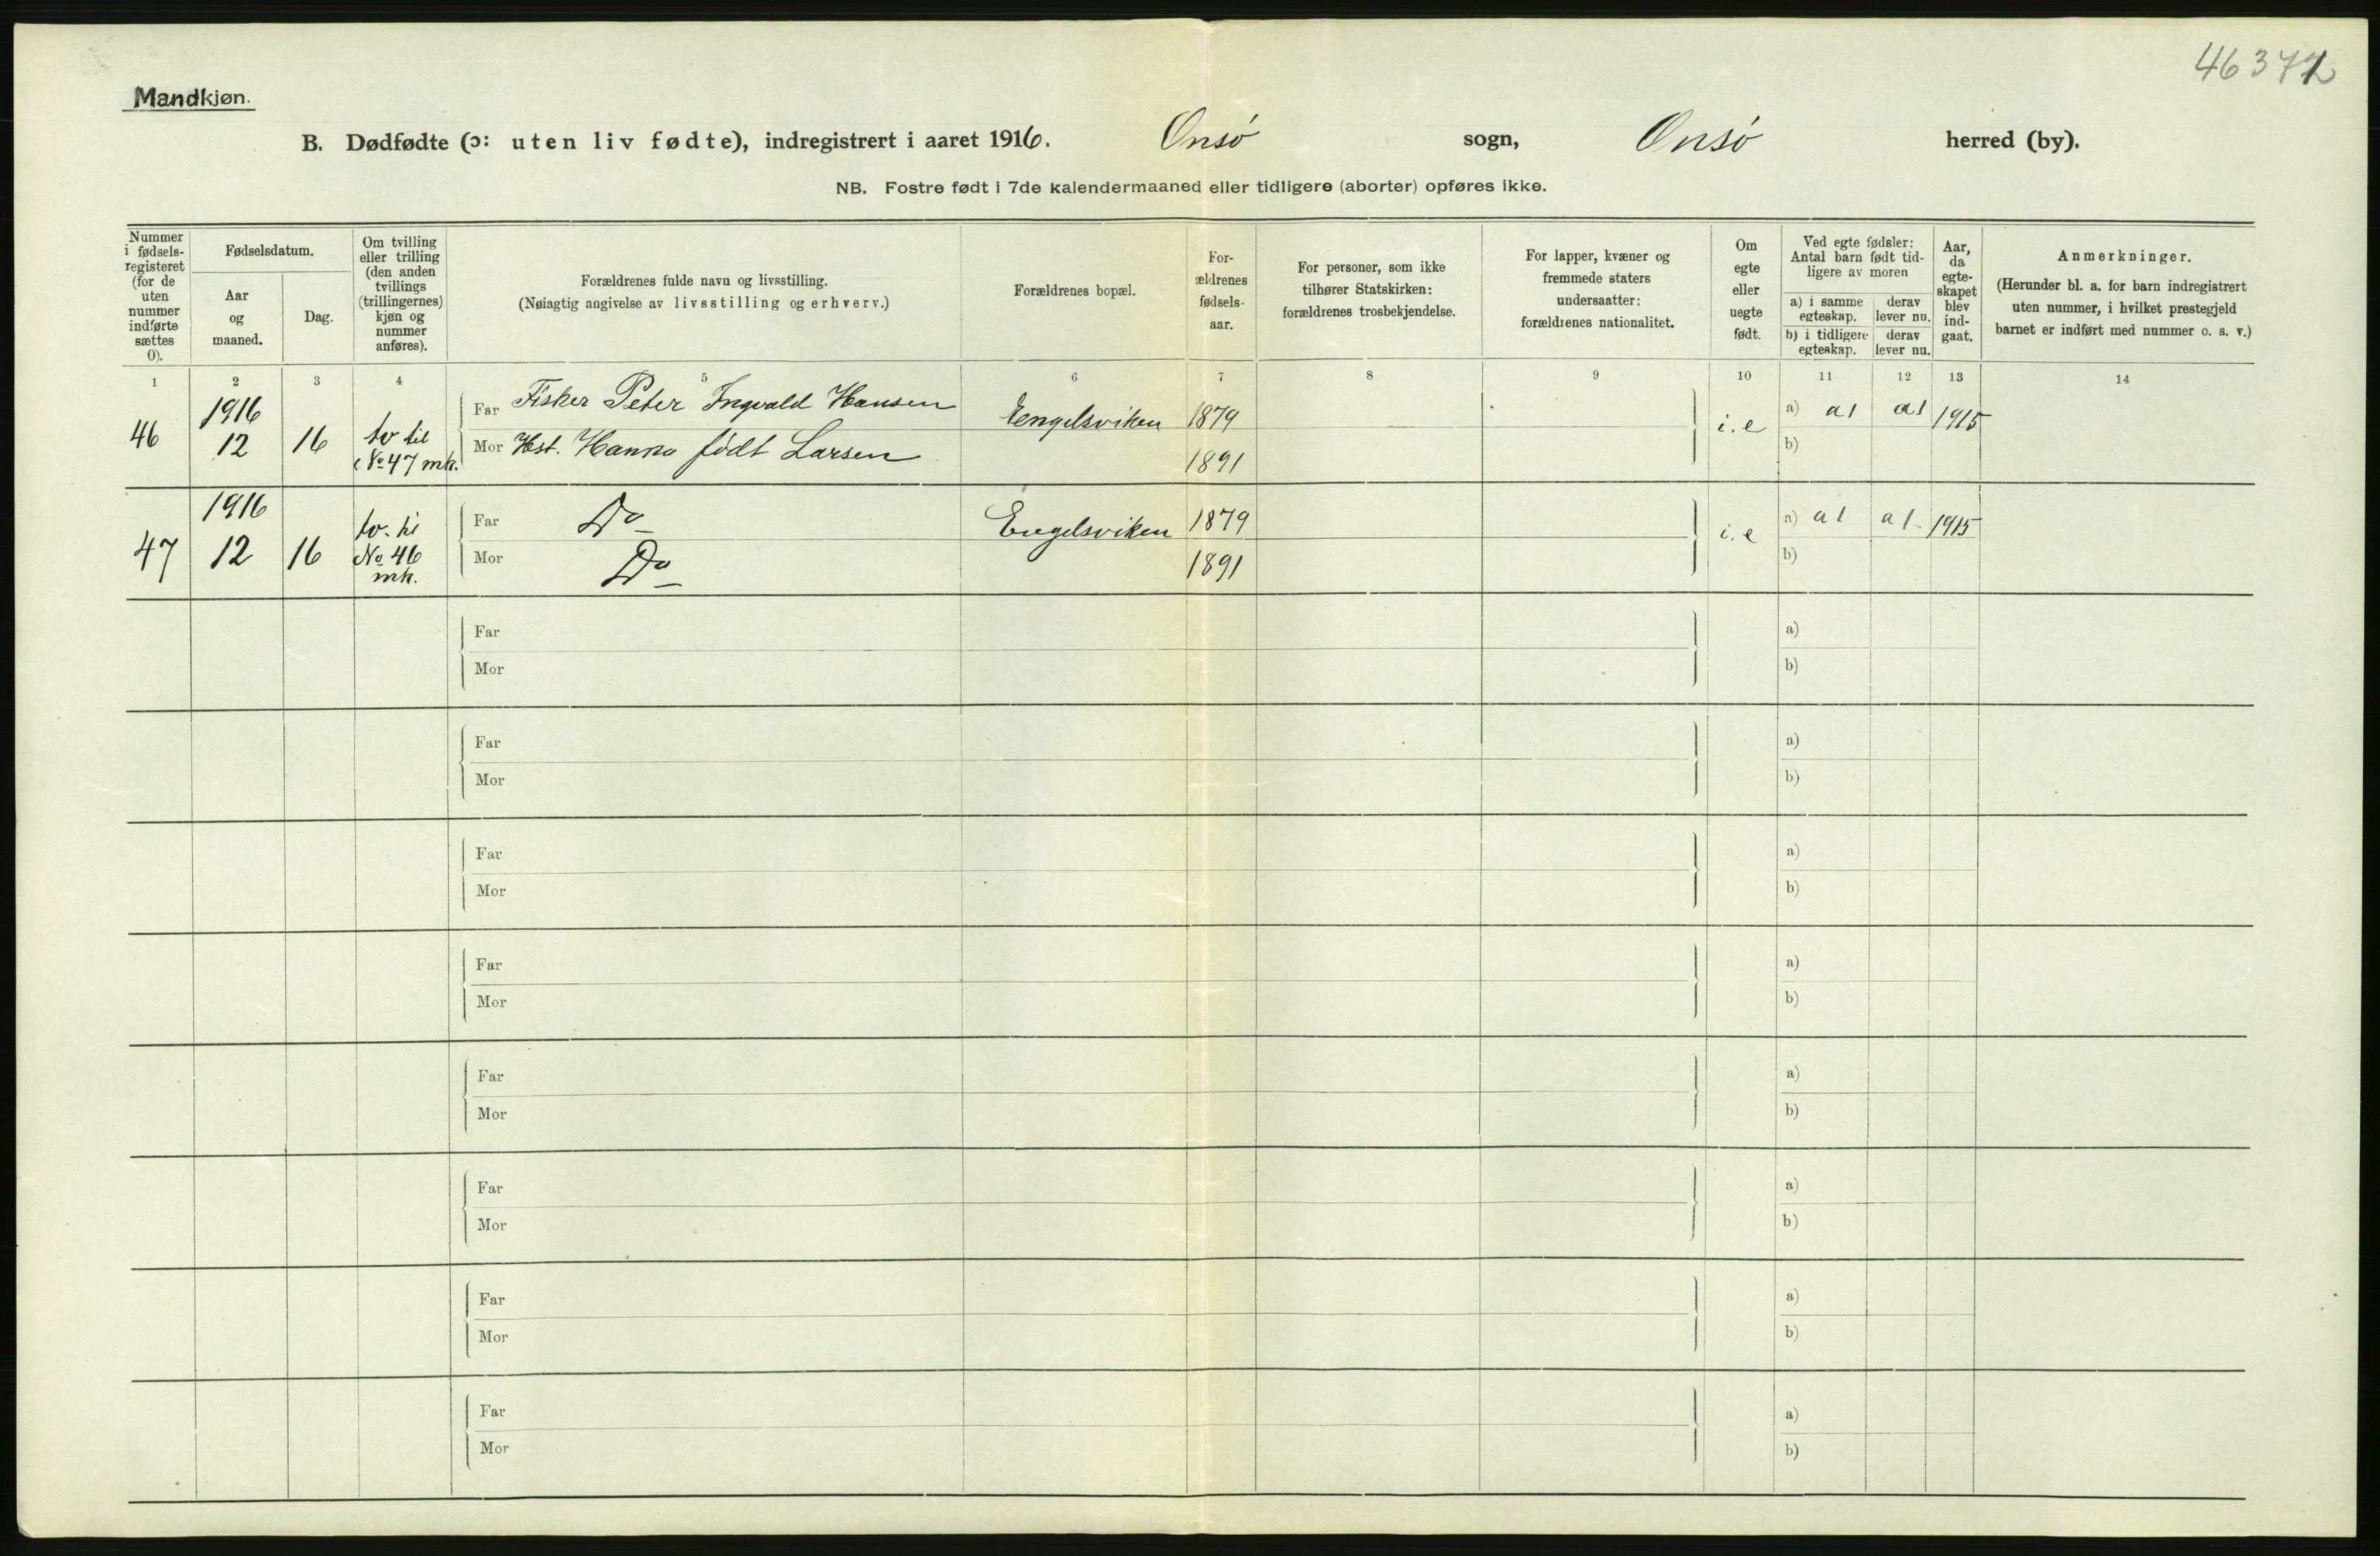 46 372
Mandkjøn.
B. Dødfødte (ɔ: uten liv fødte), indregistrert i aaret 1916. Onsö sogn, Onsö herred (by).
NB. Fostre født i 7de kalendermaaned eller tidligere (aborter) opføres ikke.
Nummer
i fødsels-
registeret
(for de
uten
nummer
indførte
sættes
0).
Fødselsdatum.
Aar
og
maaned.
Dag.
Om tvilling
eller trilling
(den anden
tvillings
(trillingernes)
kjøn og
nummer
anføres).
Forældrenes fulde navn og livsstilling.
(Nøiagtig angivelse av livsstilling og erhverv.)
Forældrenes bopæl.
For-
ældrenes
fødsels-
aar.
For personer, som ikke
tilhører Statskirken:
forældrenes trosbekjendelse.
For lapper, kvæner og
fremmede staters
undersaatter:
forældrenes nationalitet.
Om
egte
eller
uegte
født.
Ved egte fødsler:
Antal barn født tid-
ligere av moren
a) i samme
egteskap.
derav
lever nu.
b) i tidligere
egteskap.
derav
lever nu.
Aar,
da
egte-
skapet
blev
ind-
gaat.
Anmerkninger.
(Herunder bl. a. for barn indregistrert
uten nummer, i hvilket prestegjeld
barnet er indført med nummer o. s. v.)
1 2 3 4 5 6 7 8 9 10 11 12 13 14
46
1916
12
16
tv til
No 47 mk.
Far Fisker Peter Ingvald Hansen
Mor Hst. Hanna födt Larsen
Engelsviken
1879
1891
i.e
a) a1 a1 1915
b)
47
1916
12
16
tv. til
No 46
mk.
Far Do
Mor Do
Engelsviken
1879
1891
i.e
a) a1 a1 1915
b)
Far a)
Mor b)
Far a)
Mor b)
Far a)
Mor b)
Far a)
Mor b)
Far a)
Mor b)
Far a)
Mor b)
Far a)
Mor b)
Far a)
Mor b)